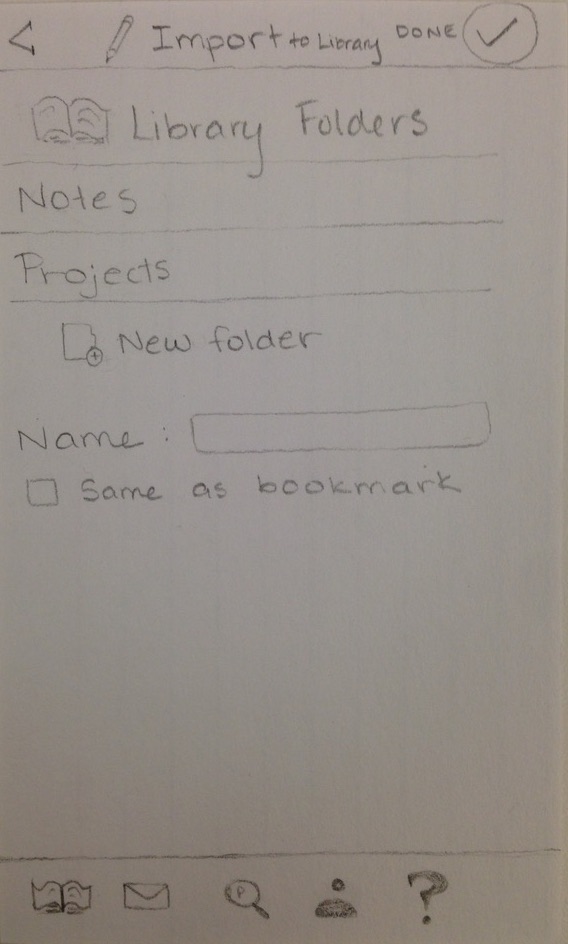 < Import to Library DONE
Library Folders
Notes
Projects
New folder
Name :
Same as bookmark
P ?